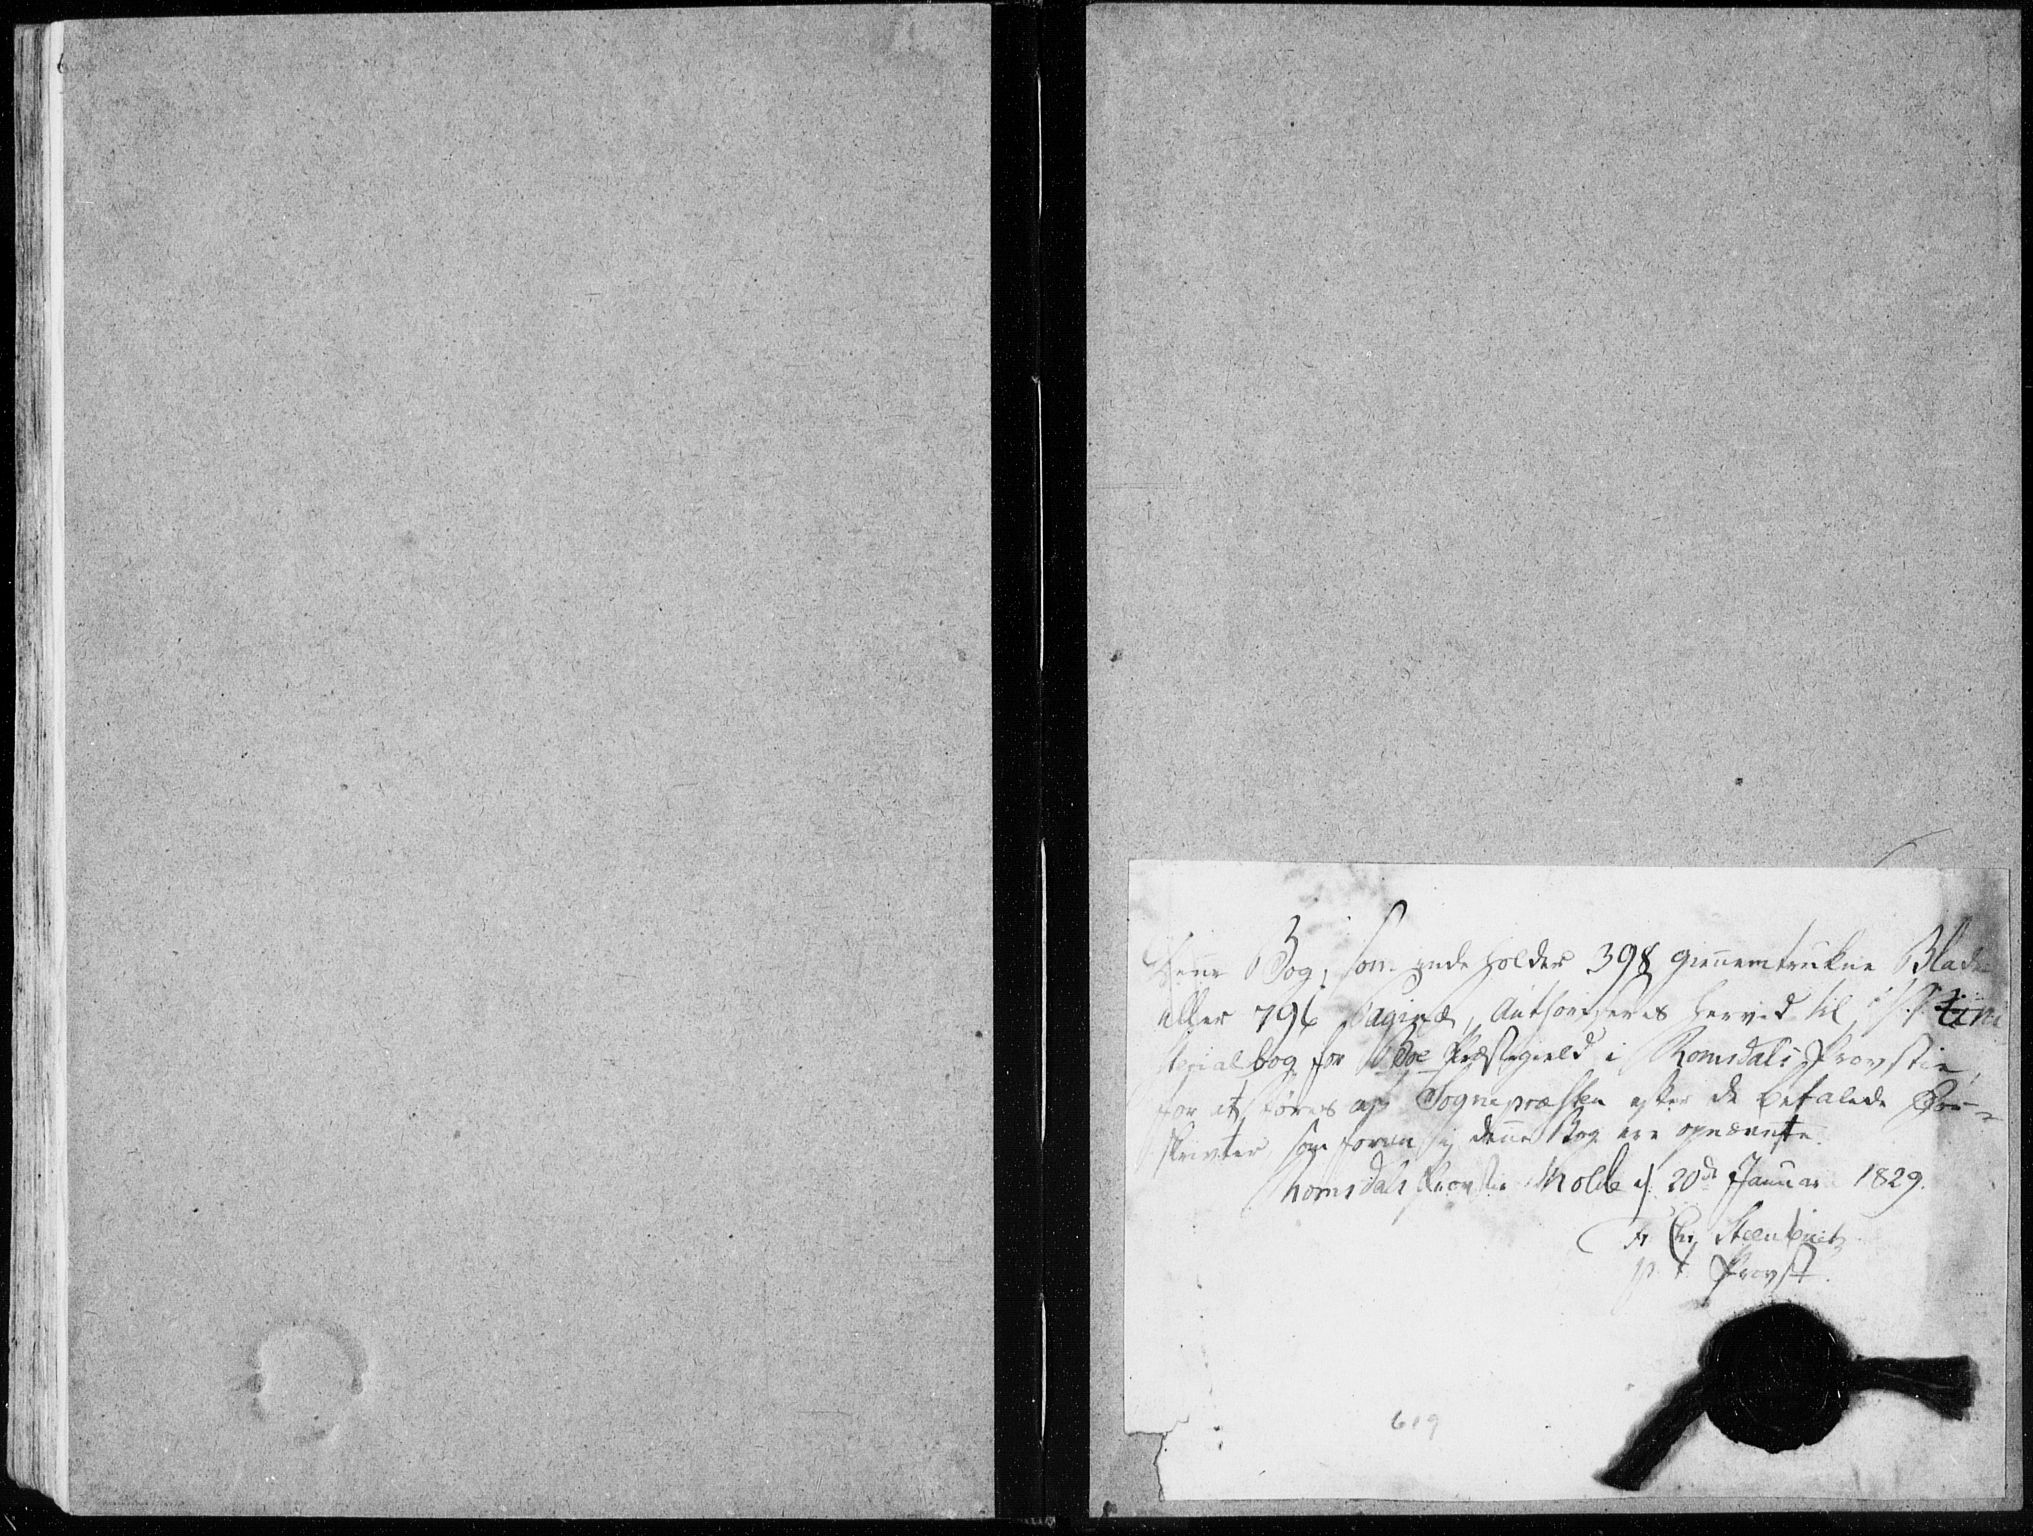 Denne Bog, som indeholder 398 giennemtrukne Blade
eller 796 Paginæ, Authoriseres herved til
terialbog for Boe Præstegield i Romsdals Provstie,
for at føres af Sognepræsten efter de befalede For-
skrivter som foran i denne Bog ere opnævnte.
Romsdals Provstie Molde d. 20de Januar 1829.
Steenbuch
p. t. Provst.
619